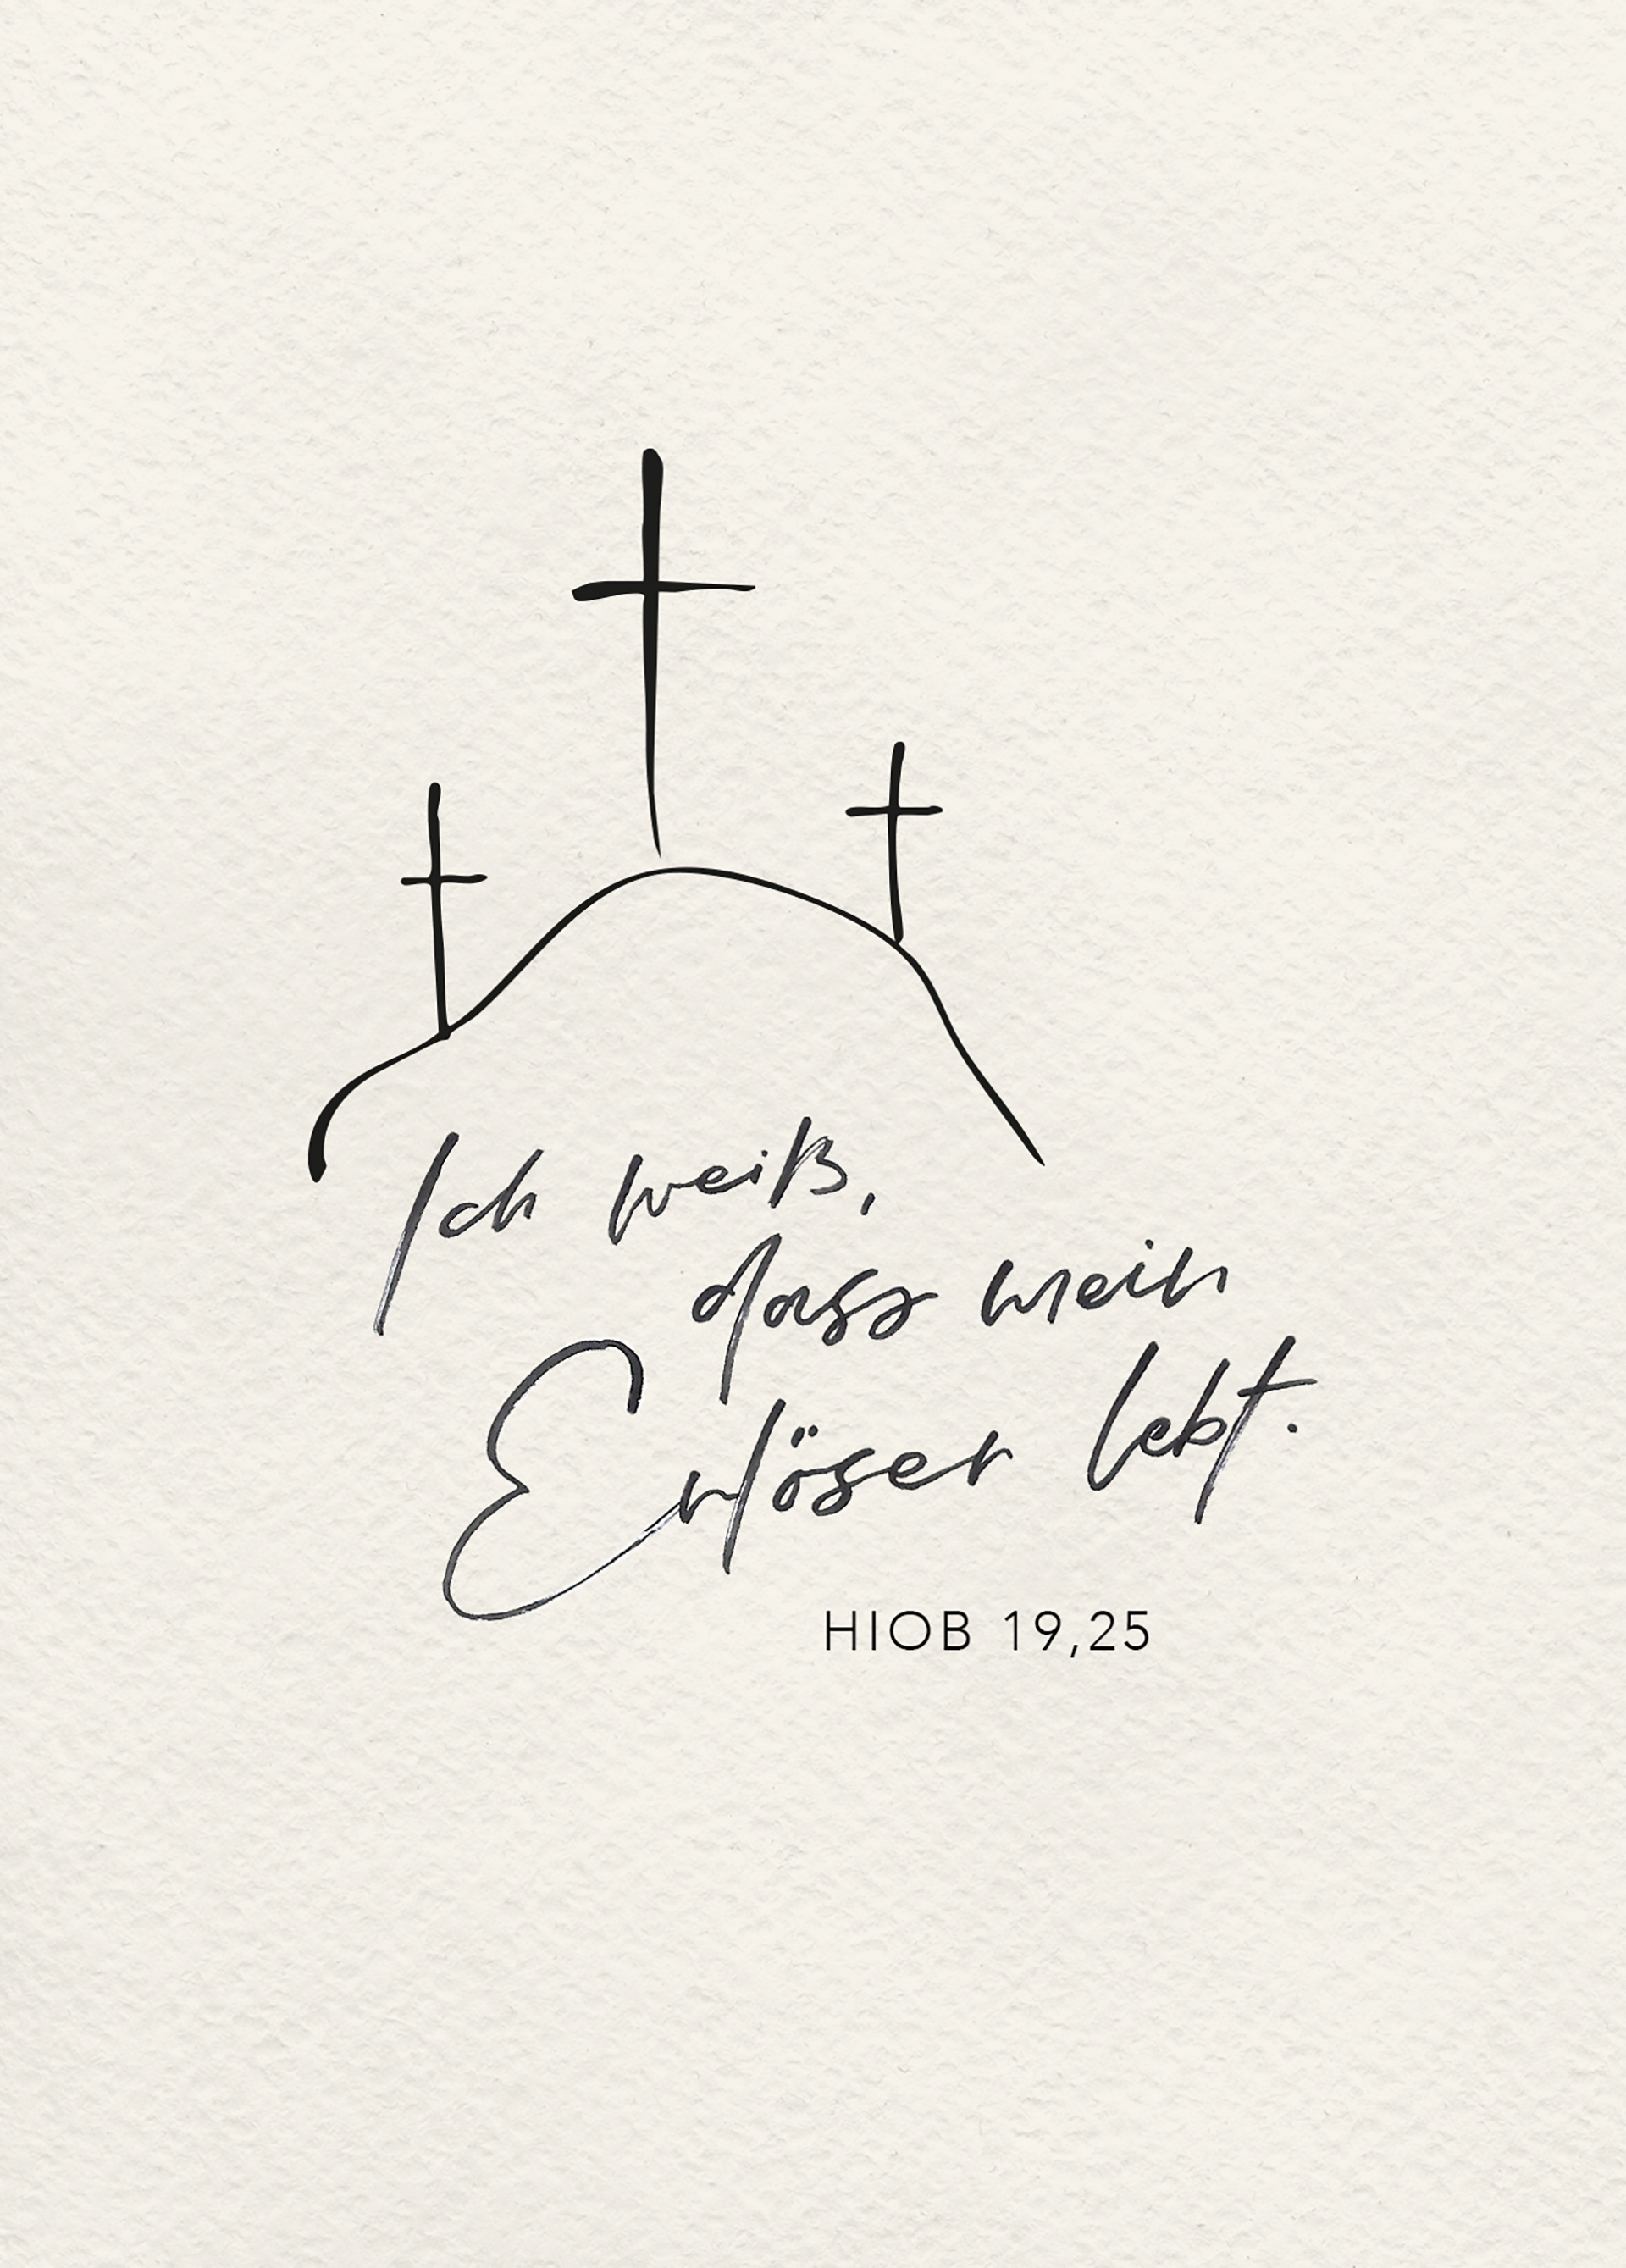 Ich weiß,
dass mein
Erlöser lebt.
HIOB 19,25